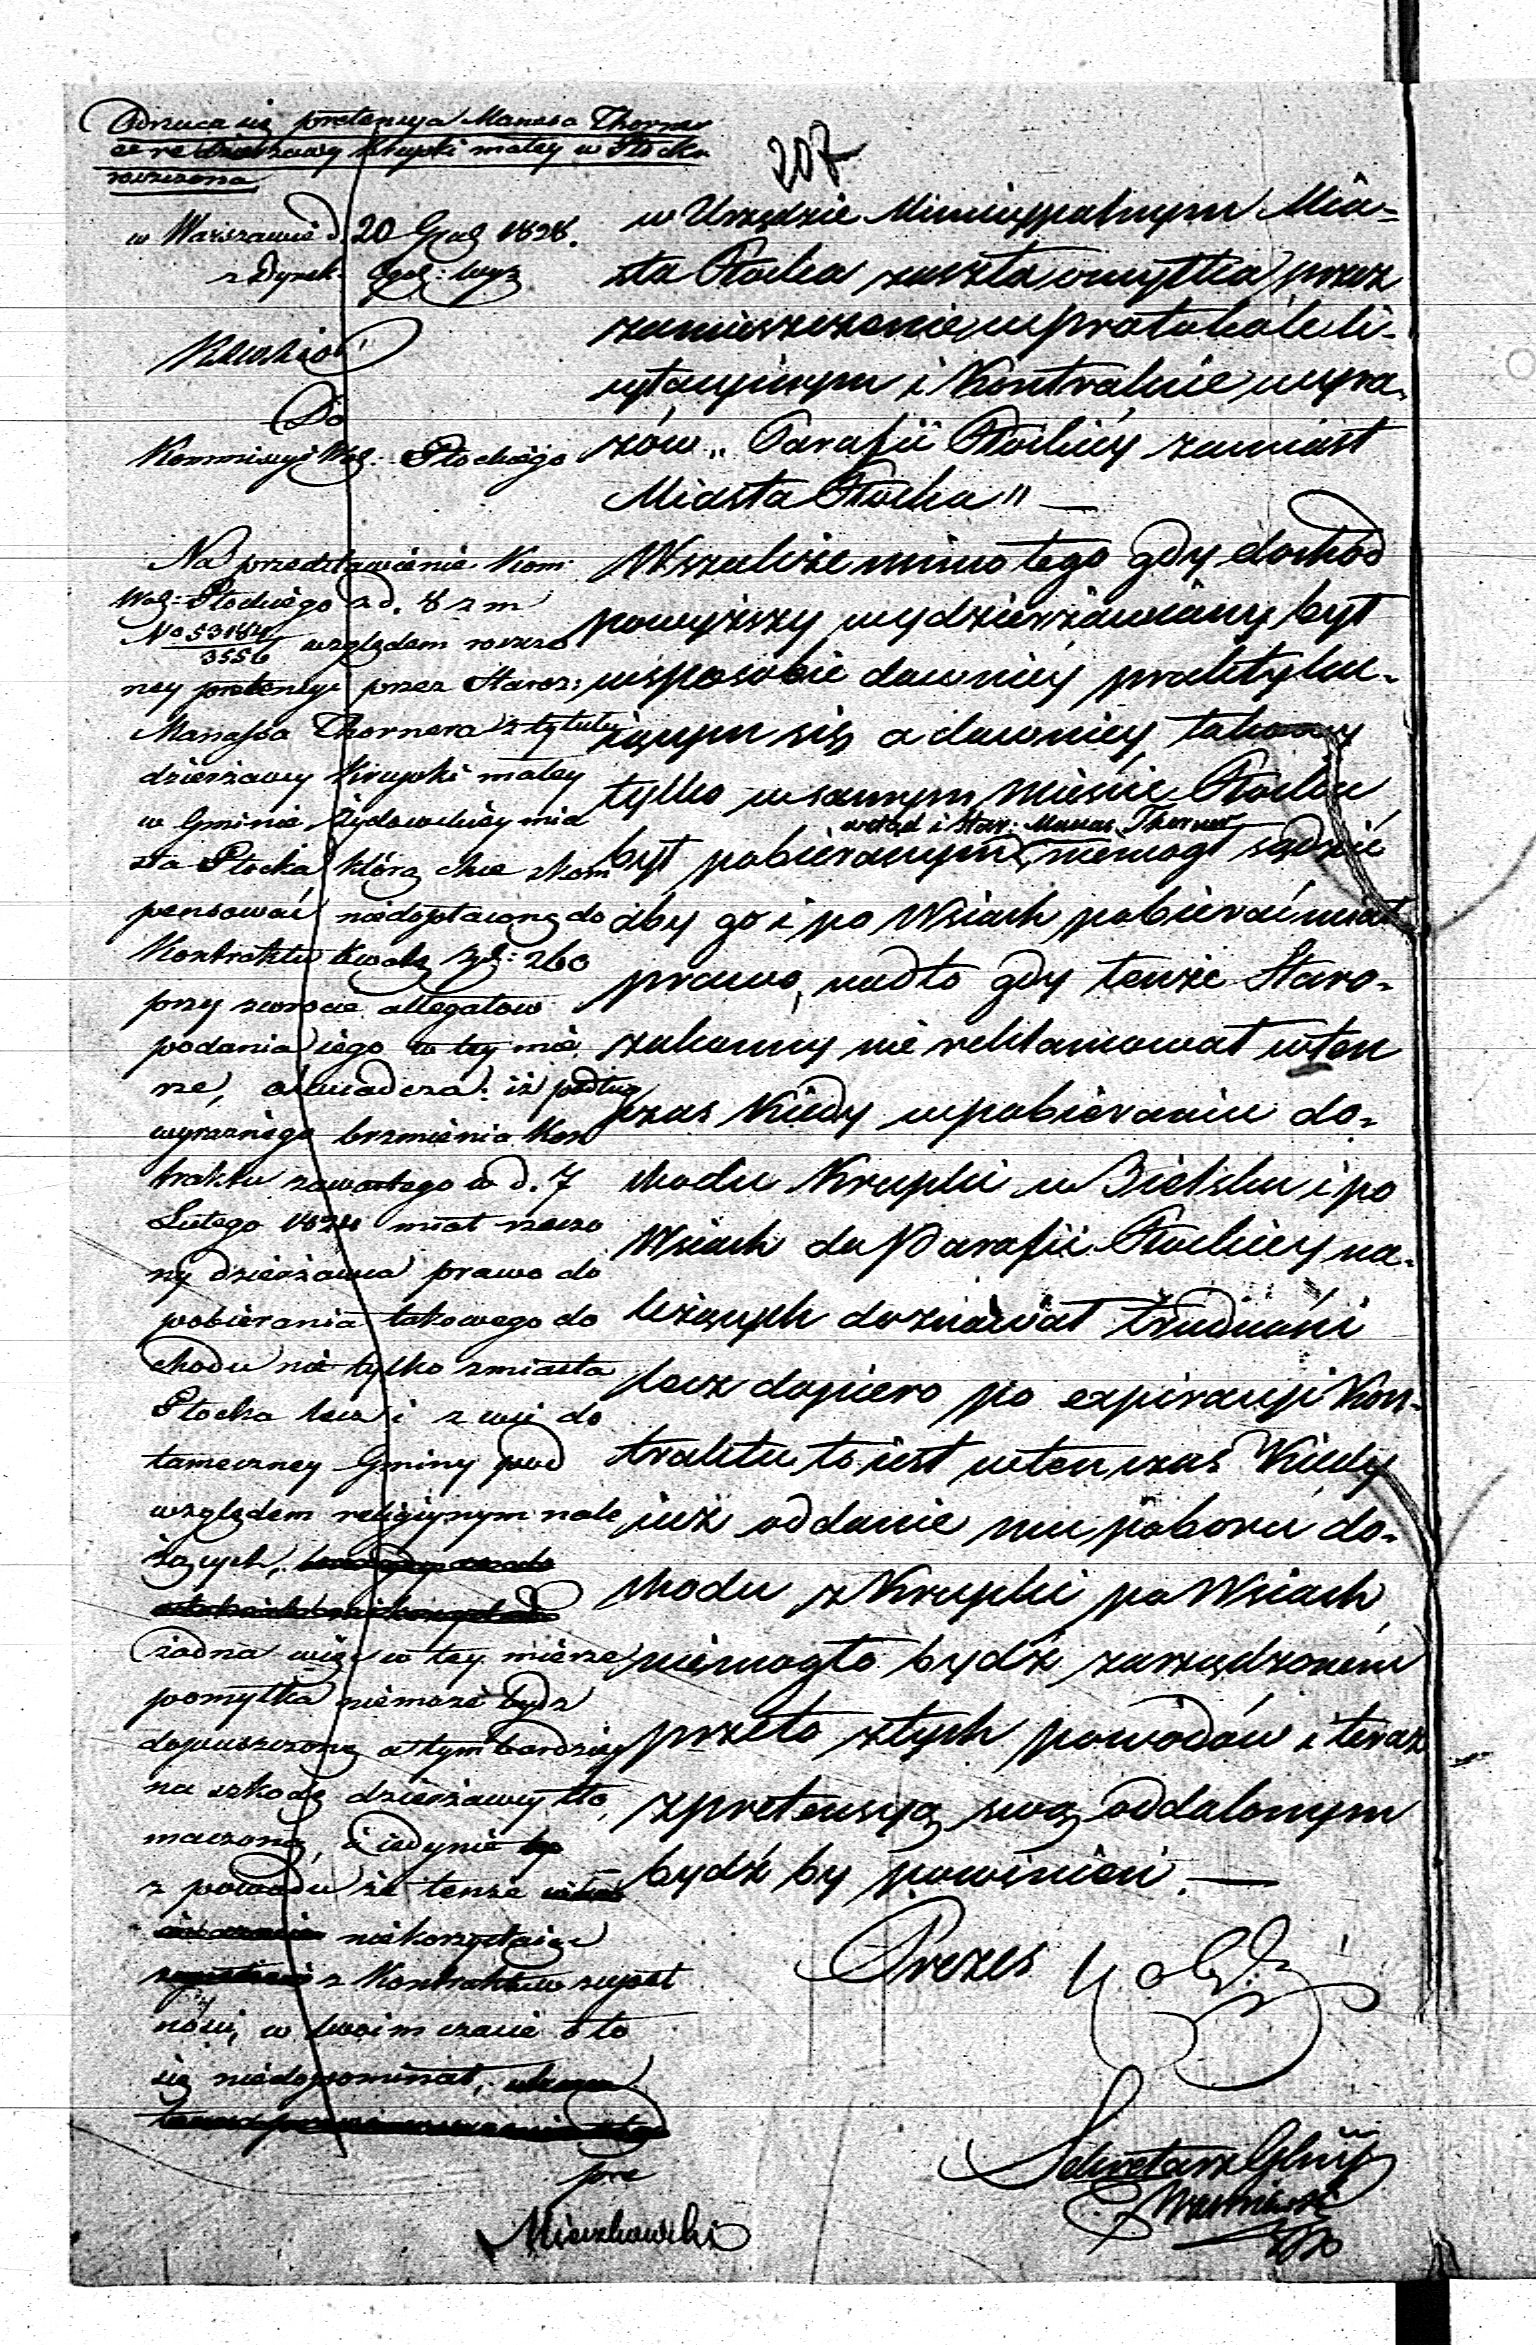 Odrzuca się pretensya Manasa Thorner
ze re dzierzawy Krupki małey w Płocku
roszczona
w Warszawie d. 20 Grud 1828.
z Dyrek. Ogól: Wyz
Do
Kommissyi Woj: Płockiego
Na przedstawienie Kom:
Woj: Płockiego z d. 8 z m
No 53184/3556 względem roszczo
ney pretensyi przez Staroz:
Manassa Thornera z tytułu
dzierżawy Krupki małey
w Gminie Żydowskiey mia
sta Płocka którą chce skom
pensować niedopłaconą do
Kontraktu kwotę Złp: 260
przy zwrocie allegatow
podania iego w tey mie
rze, oświadcza: iż podług
wyraznego brzmienia Kon
traktu zawartego w d. 7
Lutego 1824 miał rzeczo
ny dzierżawca prawo do
pobierania takowego do
chodu nie tylko z miasta
Płocka lecz i z wsi do
tameczney Gminy pod
względem religiynym nale
żących,
żadna więc w tey mierze
pomyłka niemoże bydz
dopuszczoną a tym bardziey
na szkodę dzierżawy tło
maczoną, i iedynie
z powodu że tenże
niekorzystaiąc
z Kontraktu zupeł
nowi, w swoim czasie o to
się niedopominał,
pre
Mieczkowski
207
w Urzędzie Municypalnym Mia-
sta Płocka zaszła omyłka przez
zamieszczenie w protokole li-
cytacyinym i Kontrakcie wyra-
zów „Parafii Płockiey zamiast
Miasta Płocka" —
Wszakże mimo tego gdy dochód
powyższy wydzierżawiany był
w sposobie dawniey praktyku-
iącym się a dawniey takowy
tylko w samym Mieście Płocku
wrąd i Star: Manas Thorner
był pobieranym niemogł sądzić
aby go i po Wsiach pobierać miał
prawo, nadto gdy tenże Staro-
zakonny nie reklamował wten
czas kiedy w pobieraniu do-
chodu Krupki w Bielsku i po
Wsiach do Parafii Płockiey na-
leżących doznawał trudności
lecz dopiero po expiracyi Kon-
traktu to iest wtenczas Kiedy
iuż oddanie mu poboru do-
chodu z Krupki po Wsiach
niemogło bydź zarządzonem
przeto z tych powodów i teraz
z pretensyą swą oddalonym
bydź by powinien. —
Prezes
Sekretarz Glny